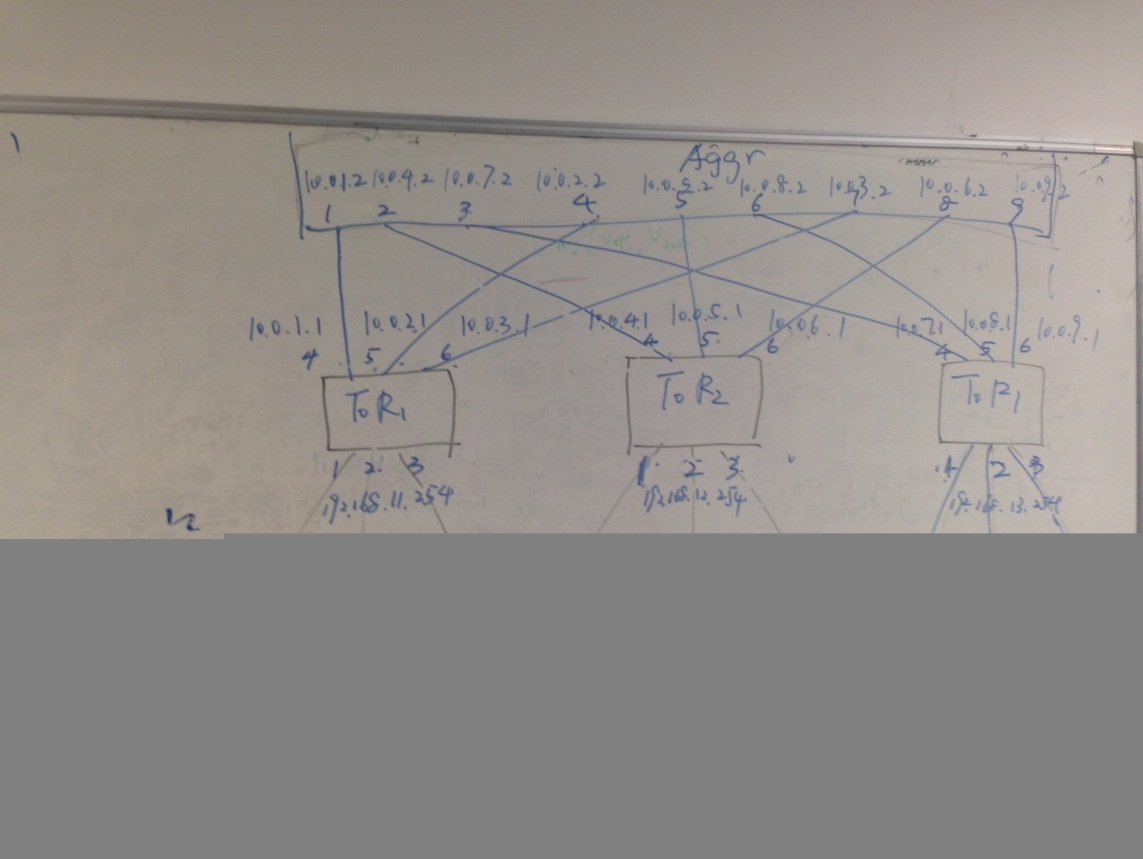 Aggr
10.0.1.2 10.0.4.2 10.0.7.2 10.0.2.2 10.0.5.2 10.0.8.2 10.0.3.2 10.0.6.2 10.0.9.2
1 2 3 4 5 6 8 9
10.0.1.1 10.0.2.1 10.0.3.1 10.0.4.1 10.0.5.1 10.0.6.1 10.0.7.1 10.0.8.1 10.0.9.1
4 5 6 4 5 6 4 5 6
ToR1 ToR2 ToR1
1 2 3 1 2 3 1 2 3
192.168.11.254 192.168.12.254 192.168.13.254